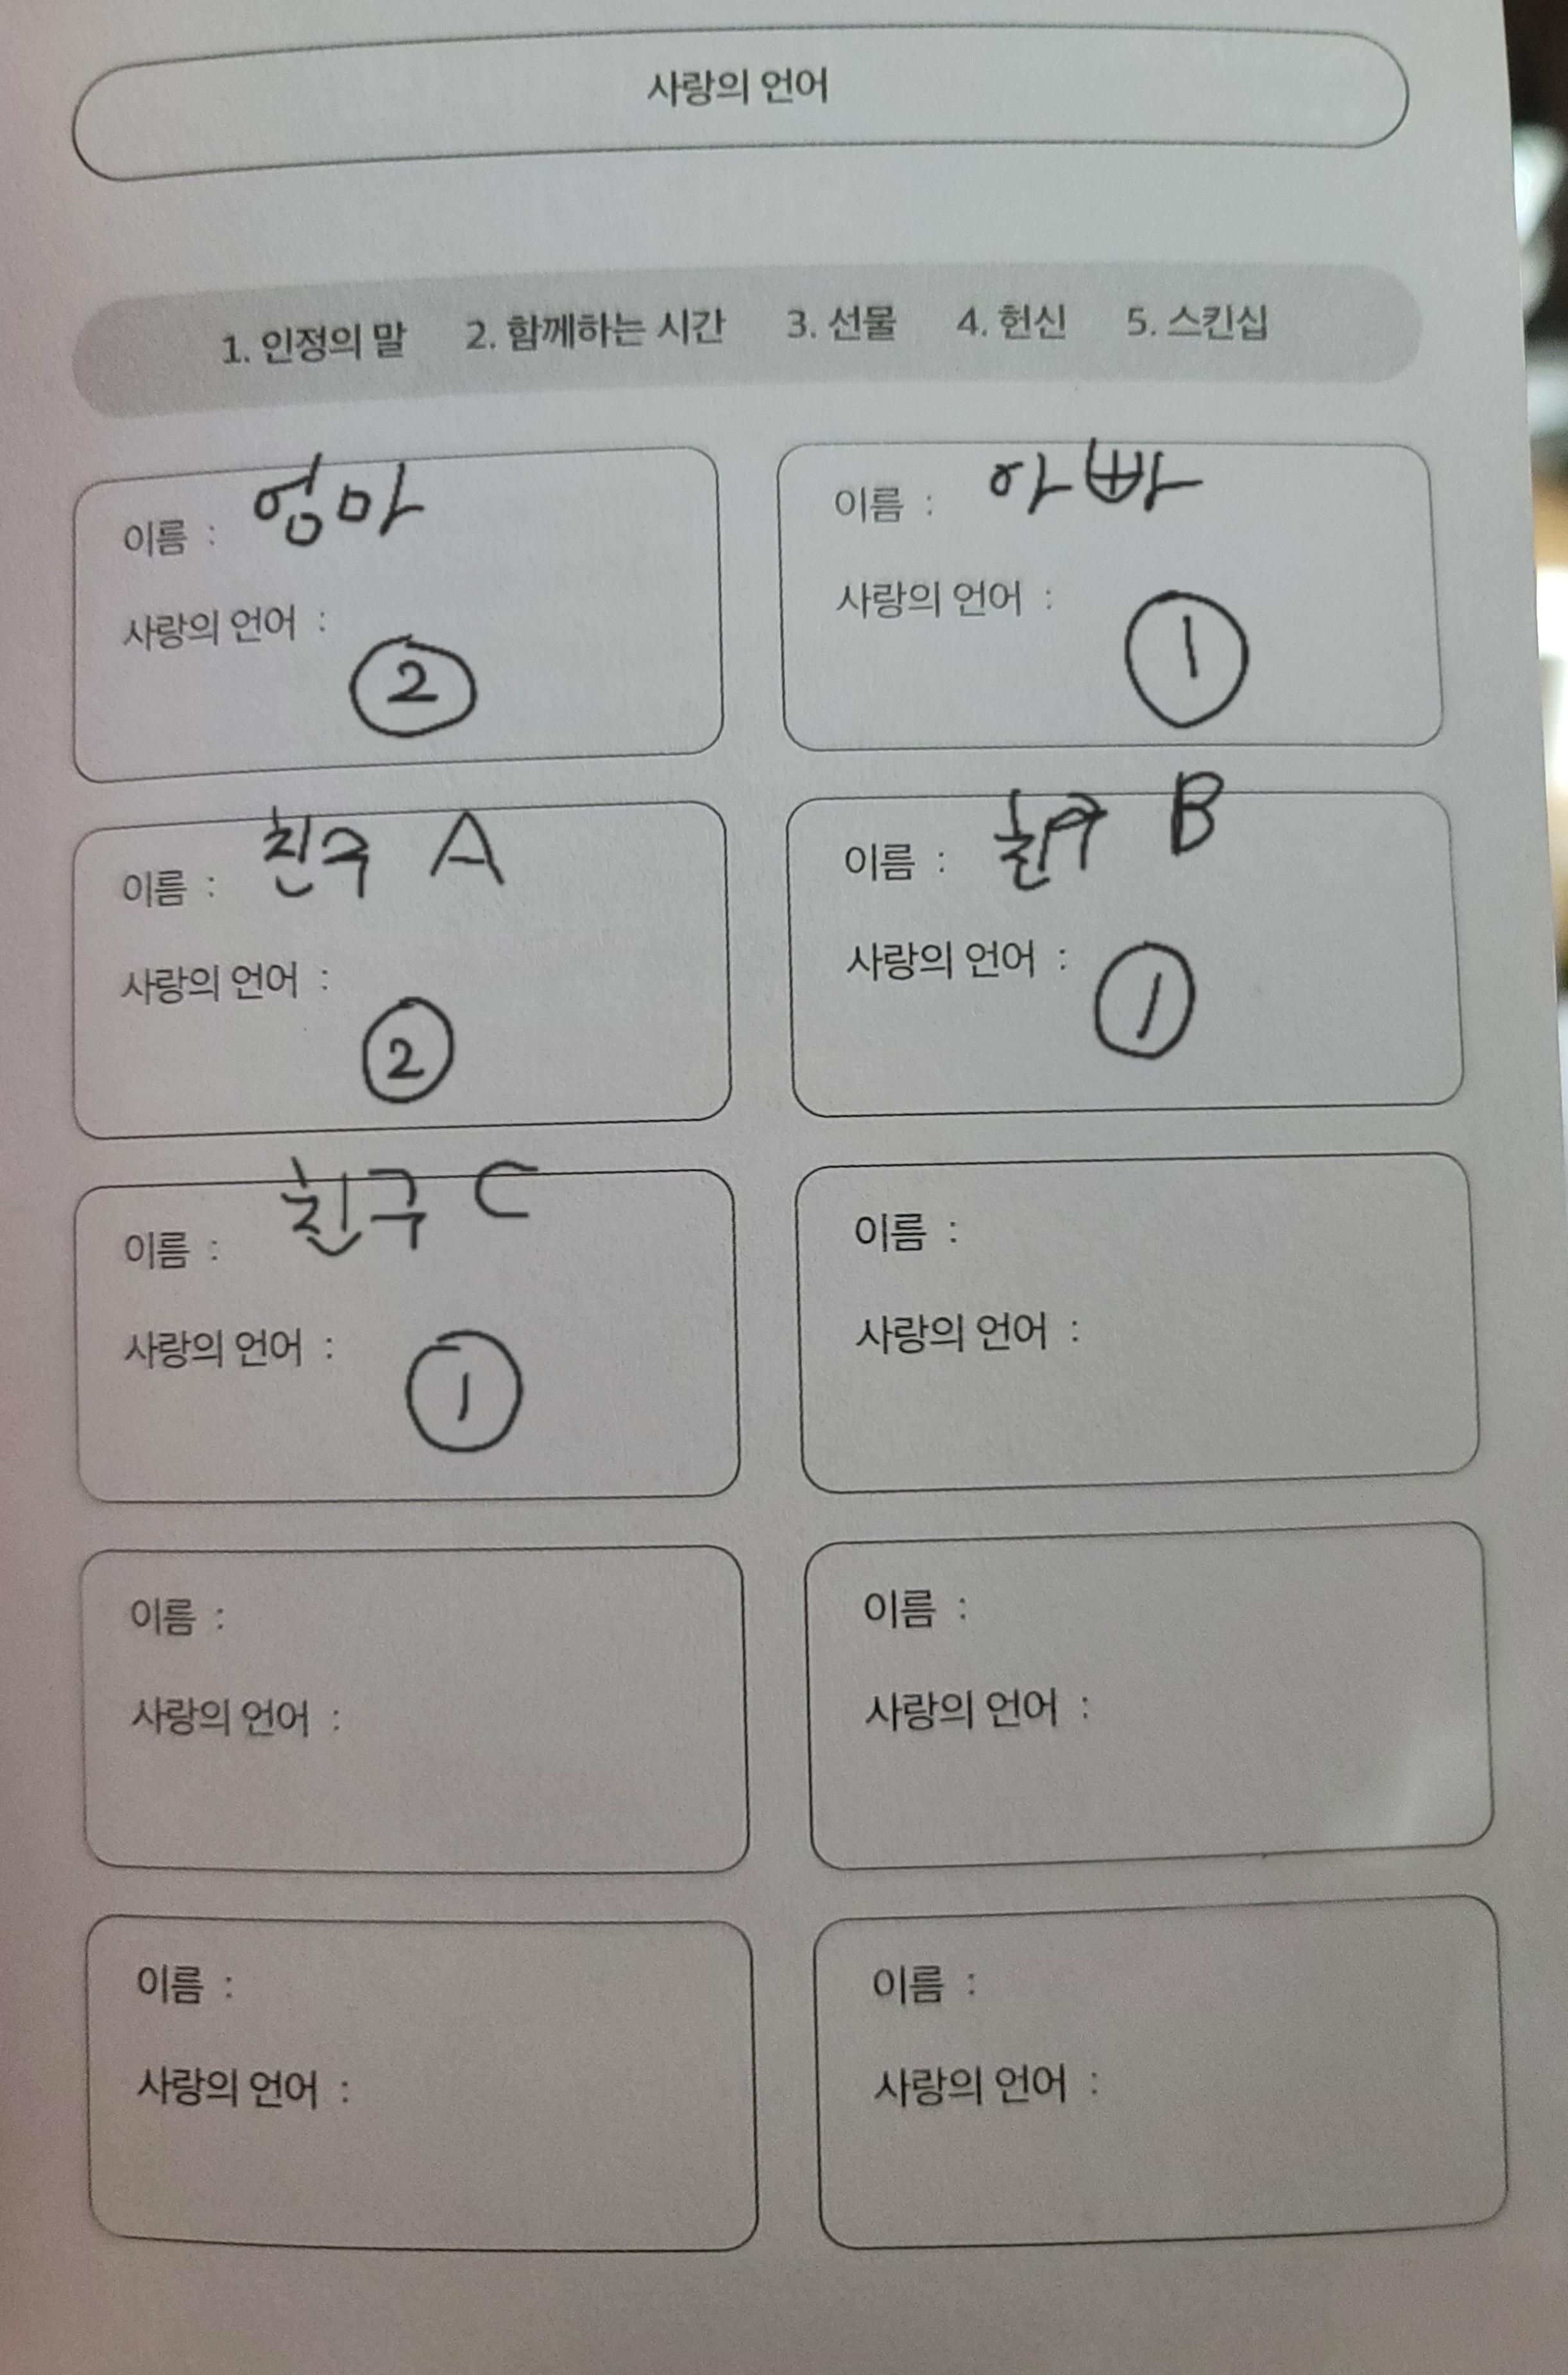 사랑의 언어
1. 인정의 말 2. 함께하는 시간 3. 선물 4. 헌신 5. 스킨십
이름 : 엄마
사랑의 언어 :
②
이름 : 아빠
사랑의 언어 :
①
이름 : 친구 A
사랑의 언어 :
②
이름 : 친구 B
사랑의 언어 :
①
이름 : 친구 C
사랑의 언어 :
①
이름 :
사랑의 언어 :
이름 :
사랑의 언어 :
이름 :
사랑의 언어 :
이름 :
사랑의 언어 :
이름 :
사랑의 언어 :